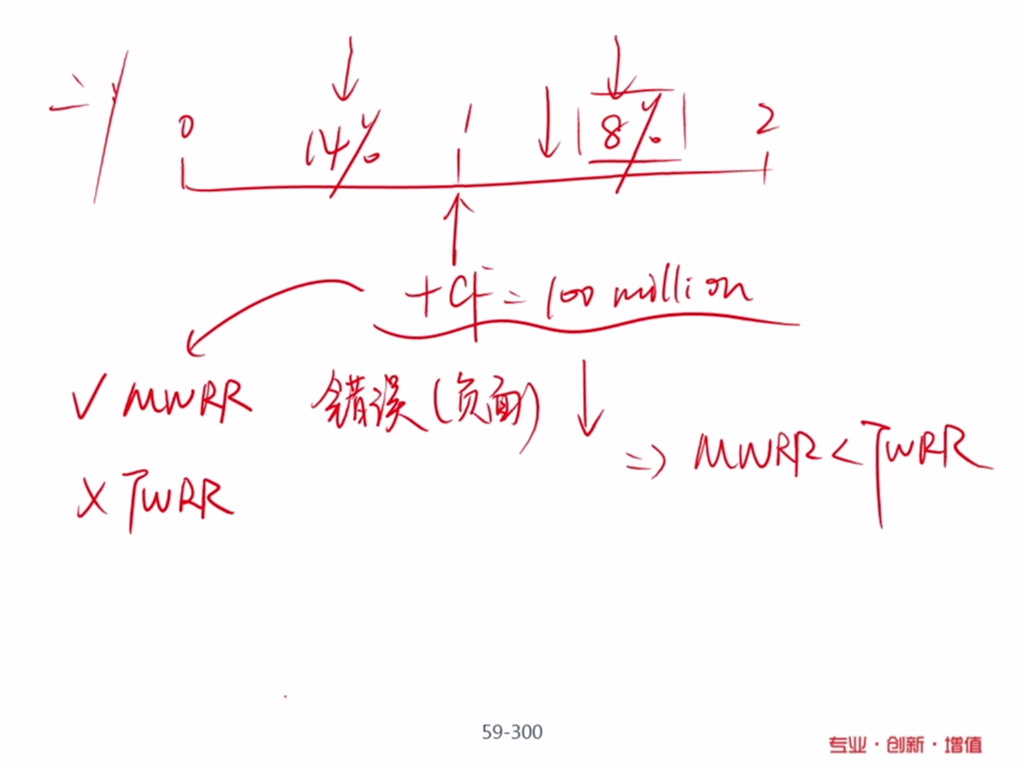 二、
0 14% 1 8% 2
+CF = 100 million
✓ MWRR 错误(负面) ↓
⇒ MWRR < TWRR
× TWRR
59-300
专业·创新·增值